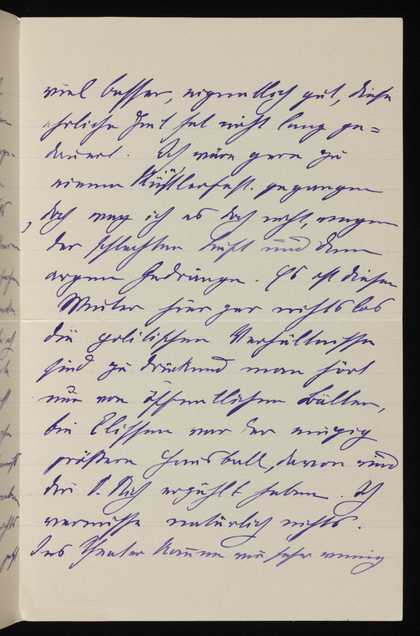 viel besser, eigentlich gut, diese
ehrliche Zeit hat nicht lang ge=
dauert. Ich wäre gern zu
einem Künstlerfest gegangen
doch mag ich es doch nicht, wegen
der schlechten Luft und dem
argen Gedränge. Es ist diesen
Winter hier gar nichts los
die politischen Verhältnisse
sind zu drückend man hört
nur von öffentlichen Bällen,
bei Elissen war der einzig
größere Hausball, davon wird
dir erzählt haben. Ich
vermisse natürlich nichts.
Ins Theater komme wir sehr wenig